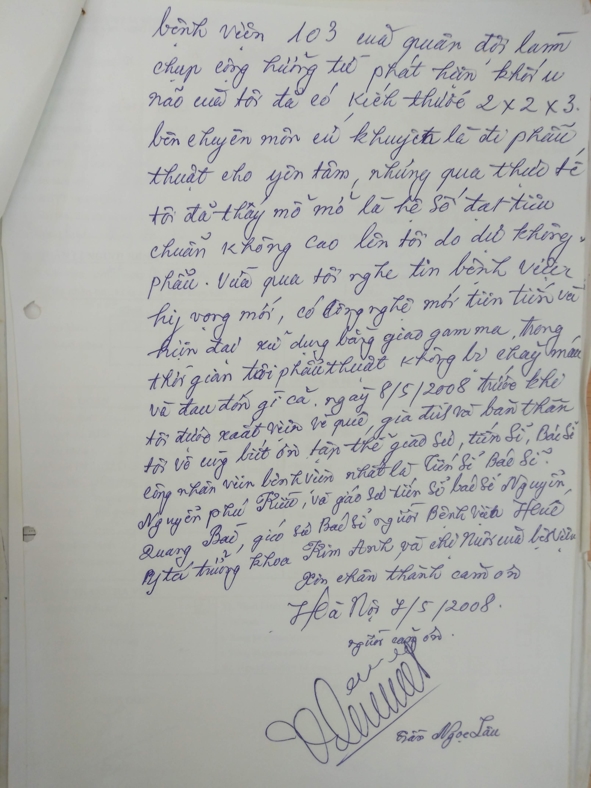 bệnh viện 103 cuả quân đội làm
chụp cộng hưởng từ phát hiện khối u
não cuả tôi đã có kích thước 2 x 2 x 3.
bên chuyên môn có khuyên là đi phẫu
thuật cho yên tâm, nhưng qua thực tế
tôi đã thấy mổ mở là hệ số đạt tiêu
chuẩn không cao lên tôi do dự không
phẫu. Vừa qua tôi nghe tin bệnh viện
hy vọng mới, có công nghệ mới tiên tiến và
hiện đại xử dụng bằng giao gamma, trong
thời gian tôi phẫu thuật không bị chảy máu
và đau đớn gì cả. ngày 8/5/2008 trước khi
tôi được xuất viện về quê, gia đình và bản thân
tôi vô cùng biết ơn tập thể giáo sư, tiến sĩ, Bác sĩ
công nhân viên bệnh viện nhất là Tiến sĩ Bác sĩ
Nguyễn phú và giáo sư tiến sĩ bác sĩ Nguyễn
Quang giáo sư Bác sĩ người Bệnh viện Huế
Y tá trưởng khoa Kim Anh và chị cuả bệnh viện
Xin chân thành cảm ơn
Hà Nội 7/5/2008.
người cảm ơn.
Trần Ngọc Lâu